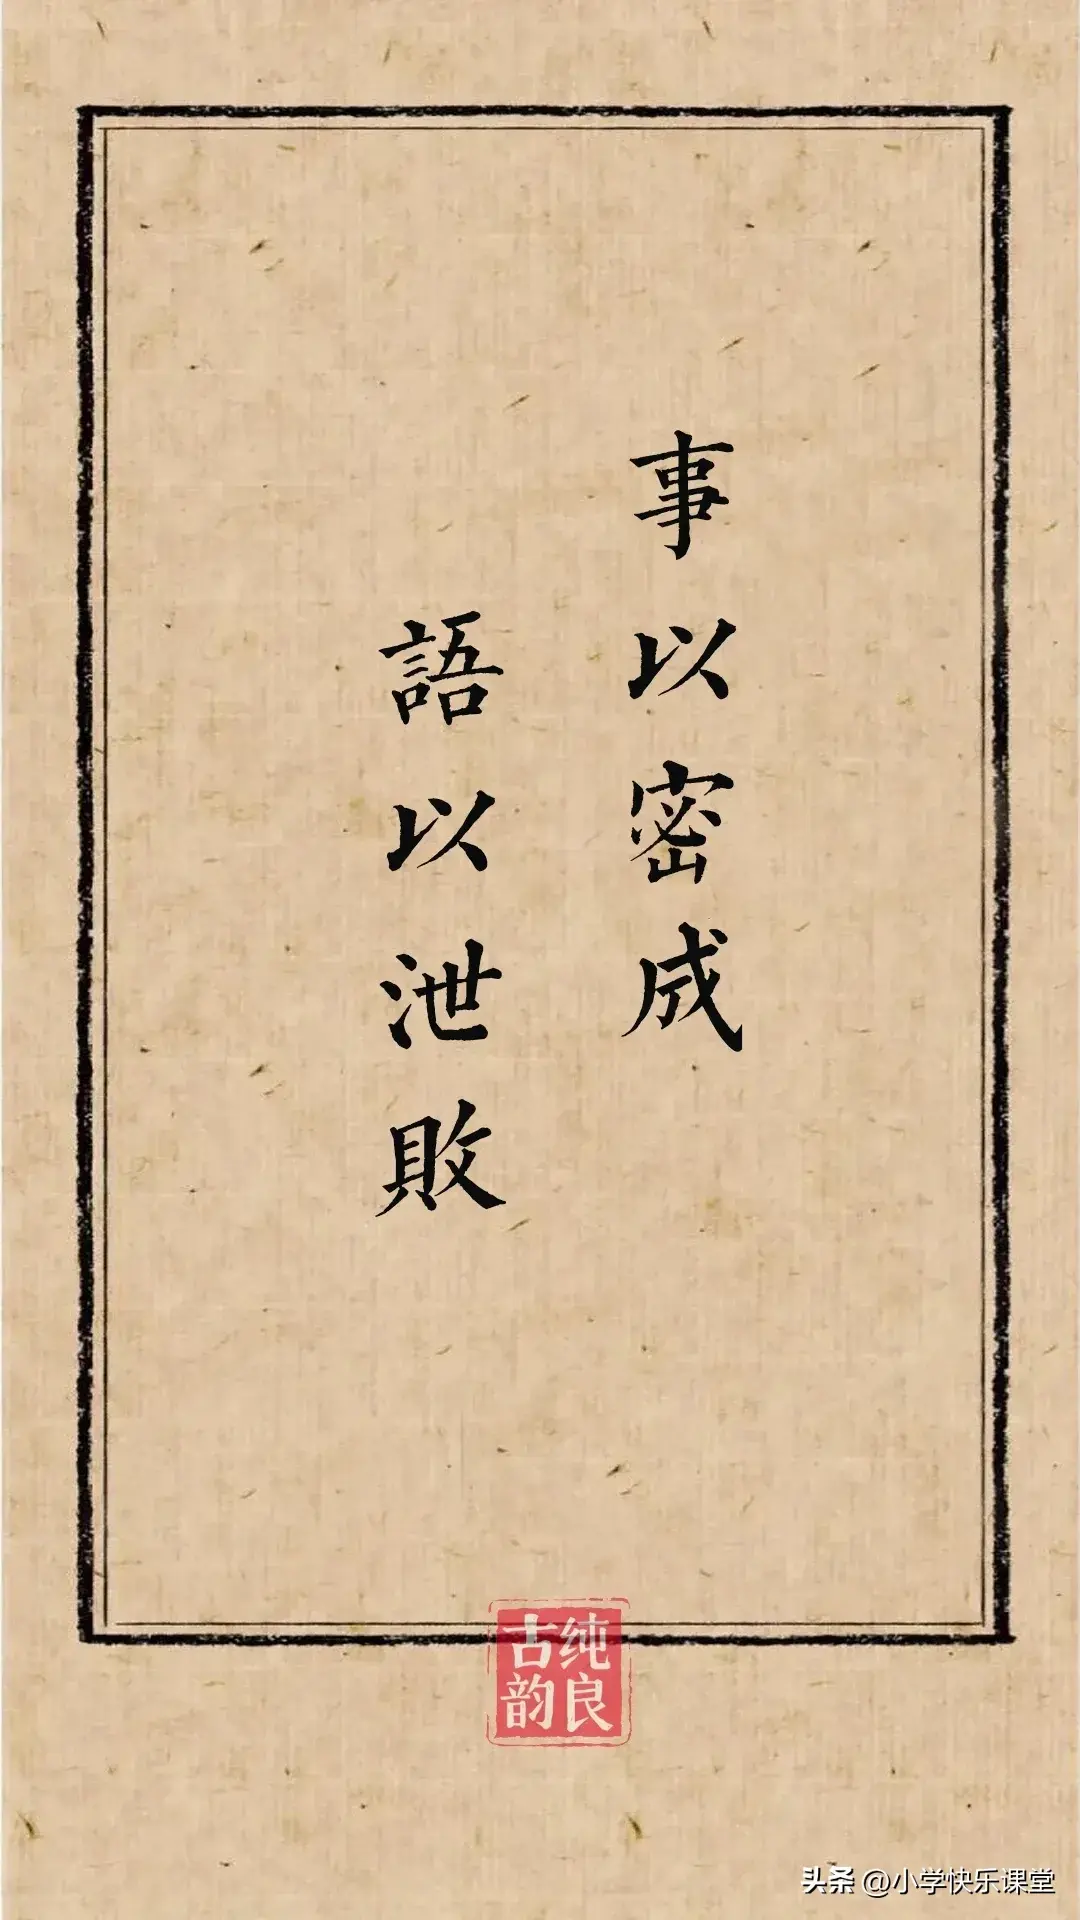 事以密成
語以泄敗
纯良
古韵
头条 @小学快乐课堂